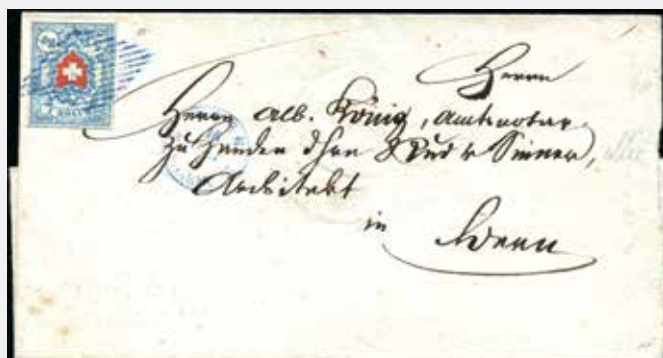 Herrn
Herrn Alb. König, Amtsnotar
zu Handen Rud v Sinner,
Architekt
in Bern